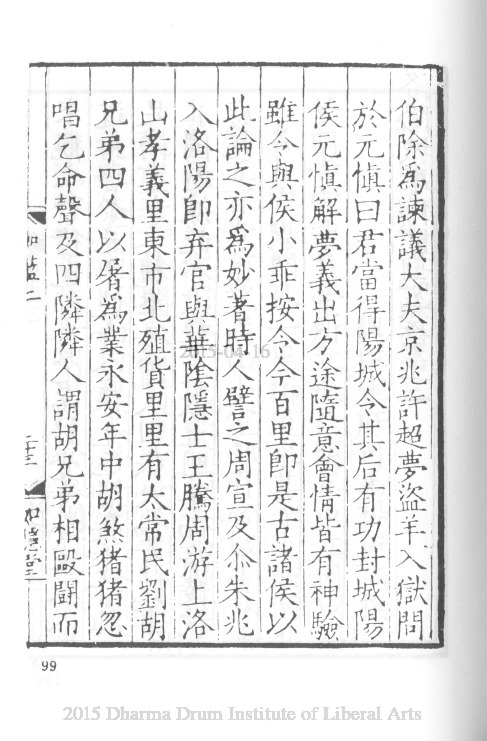 伯除爲諫議大夫京兆許超夢盜羊入獄問
於元慎曰君當得陽城令其后有功封城陽
侯元慎解夢義出方途隨意會情皆有神驗
雖令與侯小乖按令今百里即是古諸侯以
此論之亦爲妙著時人譬之周宣及尒朱兆
入洛陽即弃官與華陰隱士王騰周游上洛
山孝義里東市北殖貨里里有太常民劉胡
兄弟四人以屠爲業永安年中胡煞猪猪忽
唱乞命聲及四隣隣人謂胡兄弟相毆鬪而
加藍二
二十三
如隱堂
2015-04-16
99
2015 Dharma Drum Institute of Liberal Arts